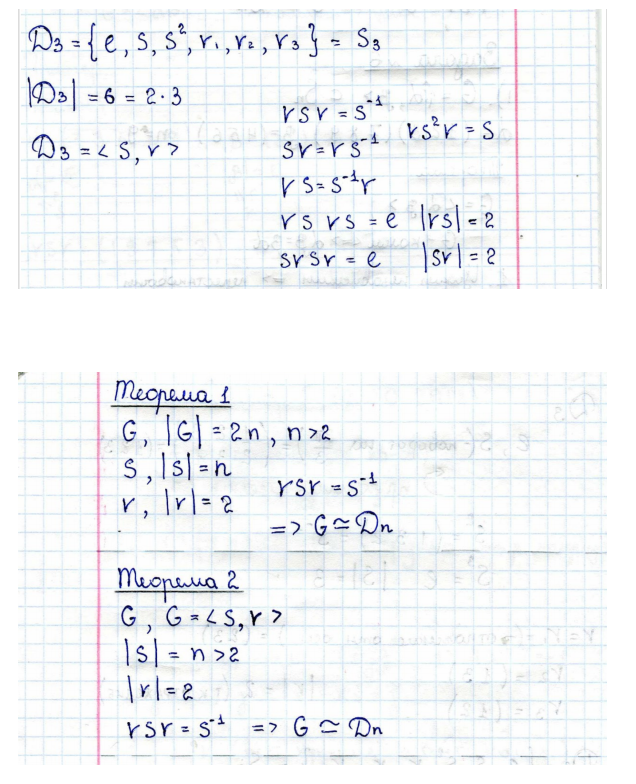 D₃ = { e, s, s², r₁, r₂, r₃ } = S₃
|D₃| = 6 = 2·3
D₃ = < s, r >
rsr = s⁻¹
rs²r = s
sr = rs⁻¹
rs = s⁻¹r
rs rs = e |rs| = 2
srsr = e |sr| = 2
Теорема 1
G, |G| = 2n, n>2
s, |s| = n
r, |r| = 2
rsr = s⁻¹
=> G ≃ Dn
Теорема 2
G, G = < s, r >
|s| = n >2
|r| = 2
rsr = s⁻¹ => G ≃ Dn